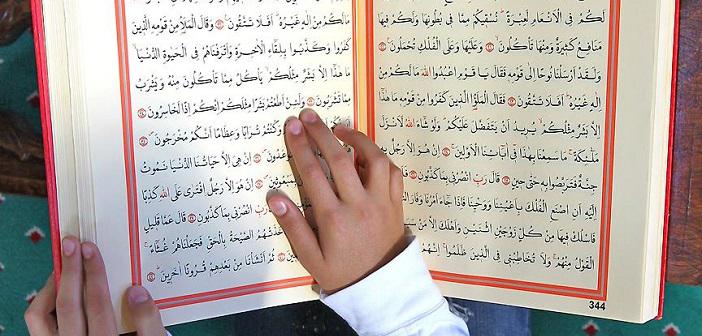 لَكُمْ فِي الْاَنْعَامِ لَعِبْرَةً نُسْقِيكُمْ مِمَّا فِي بُطُونِهَا وَلَكُمْ فِيهَا
مَنَافِعُ كَثِيرَةٌ وَمِنْهَا تَأْكُلُونَ ۝ وَعَلَيْهَا وَعَلَى الْفُلْكِ تُحْمَلُونَ ۝
وَلَقَدْ اَرْسَلْنَا نُوحًا اِلٰى قَوْمِهِ فَقَالَ يَا قَوْمِ اعْبُدُوا اللّٰهَ مَا لَكُمْ مِنْ
اِلٰهٍ غَيْرُهُ اَفَلَا تَتَّقُونَ ۝ فَقَالَ الْمَلَؤُا الَّذِينَ كَفَرُوا مِنْ قَوْمِهِ مَا هٰذَا
اِلَّا بَشَرٌ مِثْلُكُمْ يُرِيدُ اَنْ يَتَفَضَّلَ عَلَيْكُمْ وَلَوْ شَاءَ اللّٰهُ لَاَنْزَلَ
مَلٰئِكَةً مَا سَمِعْنَا بِهٰذَا فِي اٰبَائِنَا الْاَوَّلِينَ ۝ اِنْ هُوَ اِلَّا رَجُلٌ بِهِ
جِنَّةٌ فَتَرَبَّصُوا بِهِ حَتّٰى حِينٍ ۝ قَالَ رَبِّ انْصُرْنِي بِمَا كَذَّبُونِ ۝
اِلَيْهِ اَنِ اصْنَعِ الْفُلْكَ بِاَعْيُنِنَا وَوَحْيِنَا فَاِذَا جَاءَ اَمْرُنَا وَفَارَ
فَاسْلُكْ فِيهَا مِنْ كُلٍّ زَوْجَيْنِ اثْنَيْنِ وَاَهْلَكَ اِلَّا مَنْ
الْقَوْلُ مِنْهُمْ وَلَا تُخَاطِبْنِي فِي الَّذِينَ ظَلَمُوا اِنَّهُمْ
344
مَا لَكُمْ مِنْ اِلٰهٍ غَيْرُهُ اَفَلَا تَتَّقُونَ ۝ وَقَالَ الْمَلَأُ مِنْ قَوْمِهِ الَّذِينَ
كَفَرُوا وَكَذَّبُوا بِلِقَاءِ الْاٰخِرَةِ وَاَتْرَفْنَاهُمْ فِي الْحَيٰوةِ الدُّنْيَا
مَا هٰذَا اِلَّا بَشَرٌ مِثْلُكُمْ يَأْكُلُ مِمَّا تَأْكُلُونَ مِنْهُ وَيَشْرَبُ
مِمَّا تَشْرَبُونَ ۝ وَلَئِنْ اَطَعْتُمْ بَشَرًا مِثْلَكُمْ اِنَّكُمْ اِذًا لَخَاسِرُونَ ۝
وَكُنْتُمْ تُرَابًا وَعِظَامًا اَنَّكُمْ مُخْرَجُونَ ۝
تُوعَدُونَ ۝ اِنْ هِيَ اِلَّا حَيَاتُنَا الدُّنْيَا نَمُوتُ
بِمَبْعُوثِينَ ۝ اِنْ هُوَ اِلَّا رَجُلٌ افْتَرٰى عَلَى اللّٰهِ كَذِبًا
رَبِّ انْصُرْنِي بِمَا كَذَّبُونِ ۝ قَالَ عَمَّا قَلِيلٍ
فَاَخَذَتْهُمُ الصَّيْحَةُ بِالْحَقِّ فَجَعَلْنَاهُمْ غُثَاءً
ثُمَّ اَنْشَأْنَا مِنْ بَعْدِهِمْ قُرُونًا اٰخَرِينَ ۝